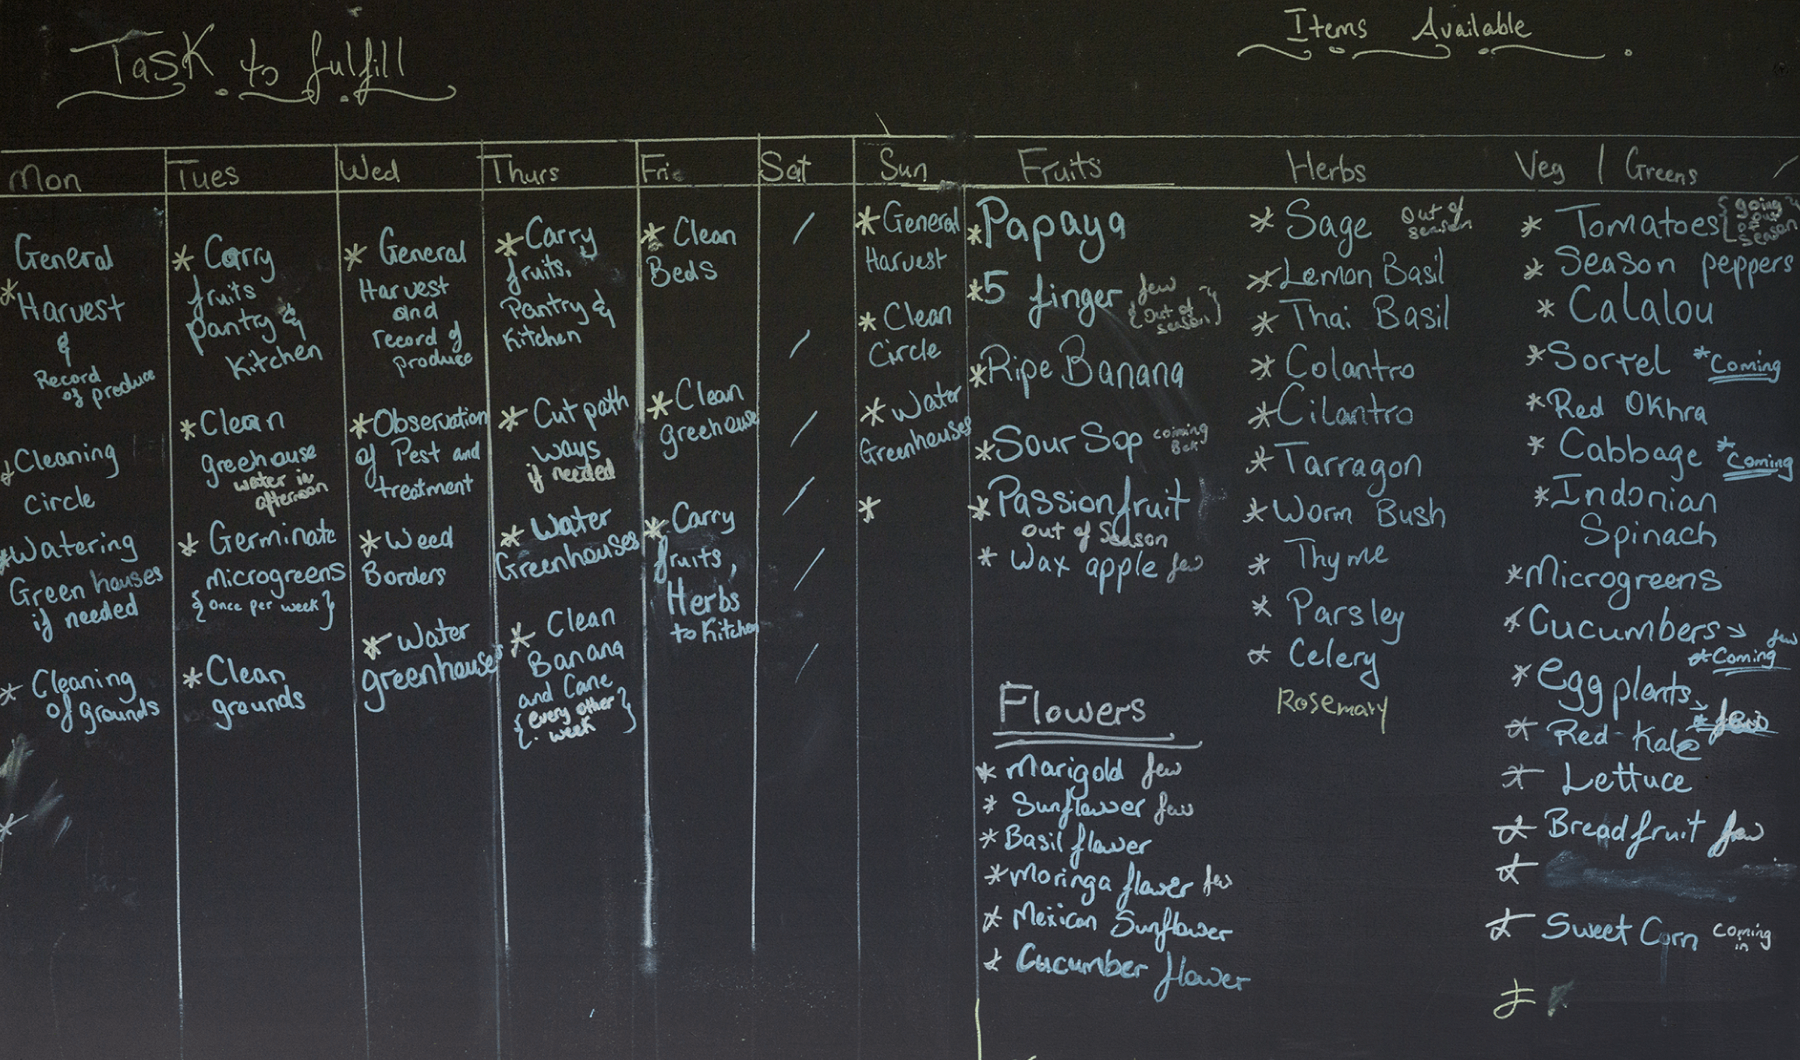 Task to fulfill
Items Available
Mon
General
* Harvest
&
Record
of produce
* Cleaning
Circle
* Watering
Green houses
if needed
* Cleaning
of grounds
*
Tues
* Carry
fruits
pantry &
Kitchen
* Clean
greehouse
water in
afternoon
* Germinate
microgreens
{once per week}
* Clean
grounds
Wed
* General
Harvest
and
record of
produce
* Observation
of Pest and
treatment
* Weed
Borders
* Water
greenhouses
Thurs
* Carry
fruits,
Pantry &
Kitchen
* Cut path
ways
if needed
* Water
Greenhouses
* Clean
Banana
and Cane
{every other
week}
Fri
* Clean
Beds
* Clean
greehouse
* Carry
fruits,
Herbs
to Kitchen
Sat
/
/
/
/
/
/
Sun
* General
Harvest
* Clean
Circle
* Water
Greenhouses
*
Fruits
* Papaya
* 5 finger few
{out of
season}
* Ripe Banana
* Sour Sop coming
* Passionfruit
out of Season
* Wax apple few
Flowers
* Marigold few
* Sunflower few
* Basil flower
* Moringa flower few
* Mexican Sunflower
* Cucumber flower
Herbs
* Sage out of
season
* Lemon Basil
* Thai Basil
* Colantro
* Cilantro
* Tarragon
* Worm Bush
* Thyme
* Parsley
* Celery
Rosemary
Veg / Greens
* Tomatoes {going
out
of
season
* Season peppers
* Calalou
* Sorrel *Coming
* Red Okhra
* Cabbage *Coming
* Indonian
Spinach
* Microgreens
* Cucumbers → few
*Coming
* Egg plants
* Red Kale
* Lettuce
* Breadfruit few
*
* Sweet Corn coming
in
*